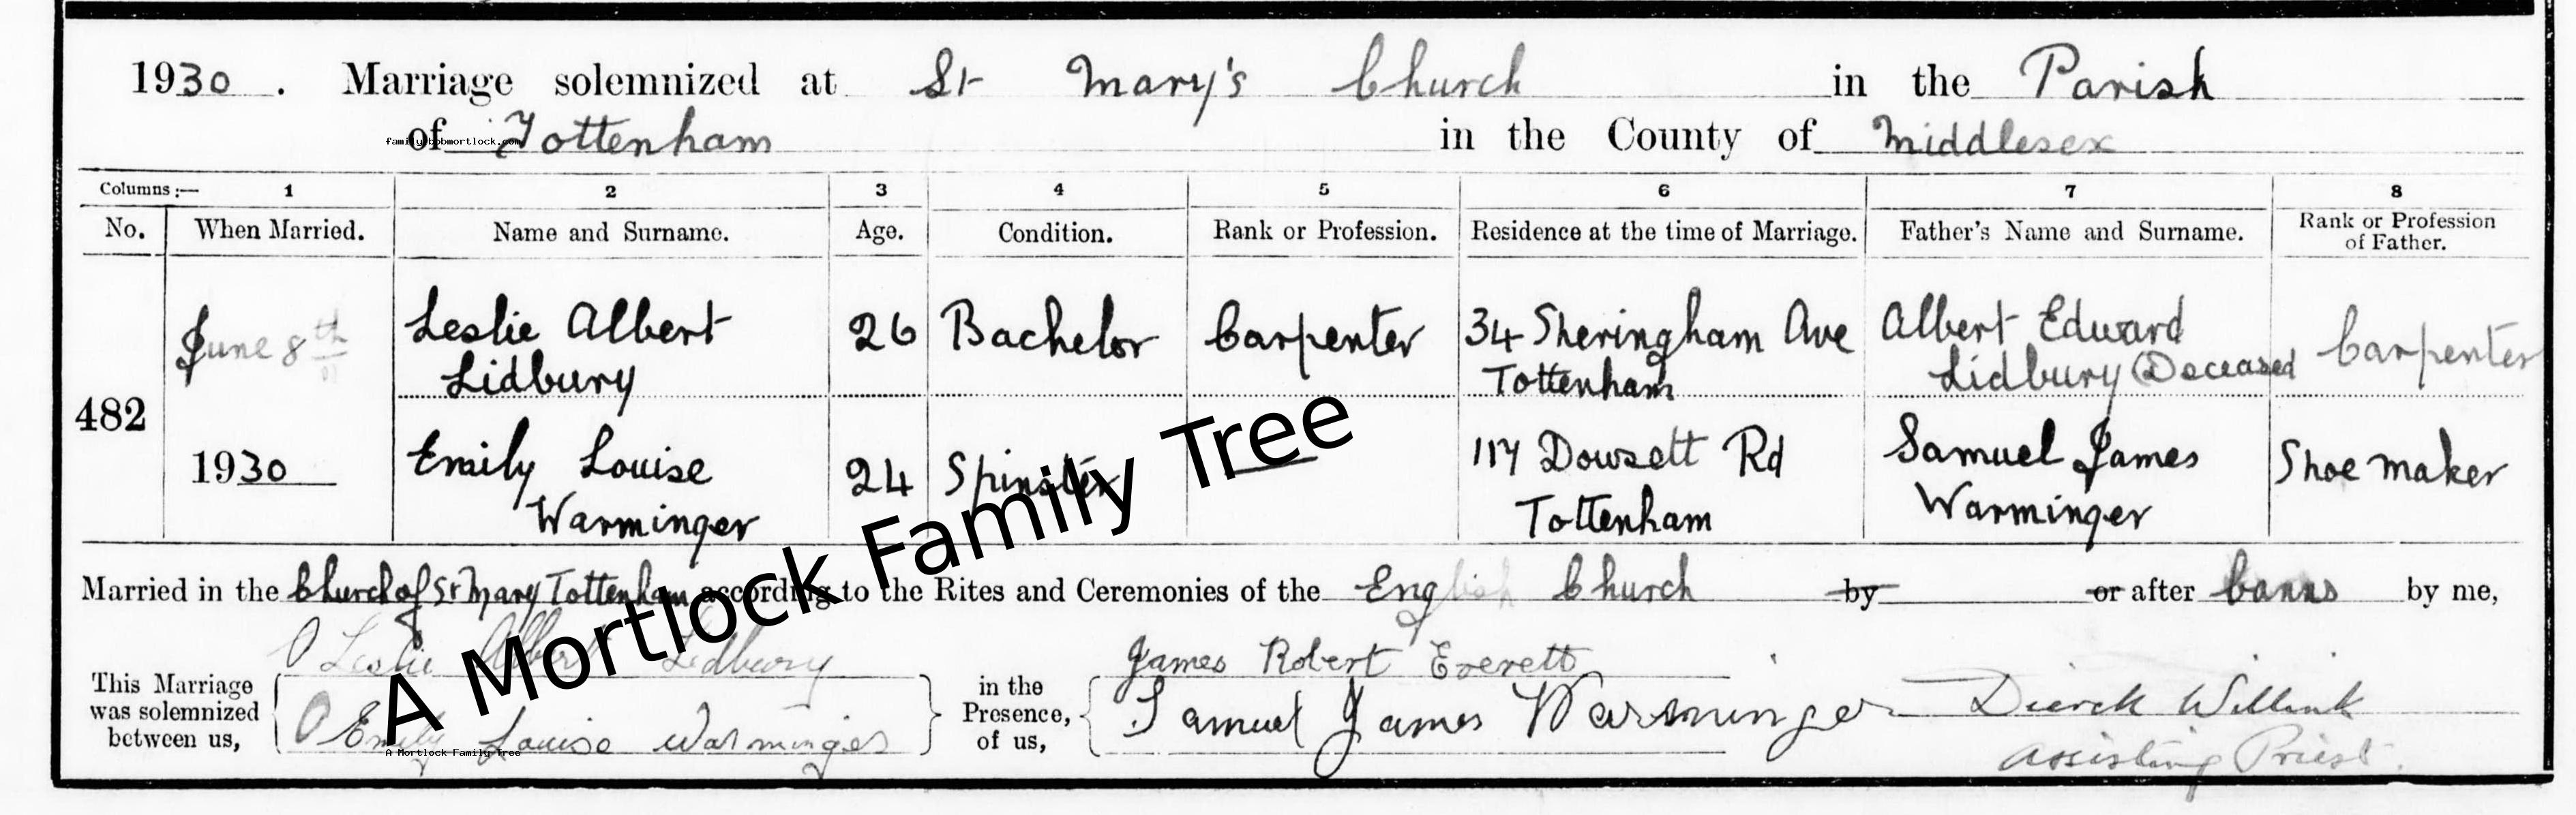 1930. Marriage solemnized at St Mary's Church in the Parish
of Tottenham in the County of Middlesex
family.bobmortlock.com
Columns :— 1 2 3 4 5 6 7 8
No. When Married. Name and Surname. Age. Condition. Rank or Profession. Residence at the time of Marriage. Father's Name and Surname. Rank or Profession
of Father.
June 8th Leslie Albert 26 Bachelor Carpenter 34 Sheringham Ave Albert Edward Carpenter
Lidbury Tottenham Lidbury (Deceased
482
1930 Emily Louise 24 Spinster — 117 Dowsett Rd Samuel James Shoe maker
Warminger Tottenham Warminger
Married in the Church of St Mary Tottenham according to the Rites and Ceremonies of the English Church by or after banns by me,
This Marriage
was solemnized
between us,
Leslie Albert Lidbury
Emily Louise Warminger
in the
Presence,
of us,
James Robert Everett
Samuel James Warminger
Dierck Willink
Assisting Priest.
A Mortlock Family Tree
A Mortlock Family Tree